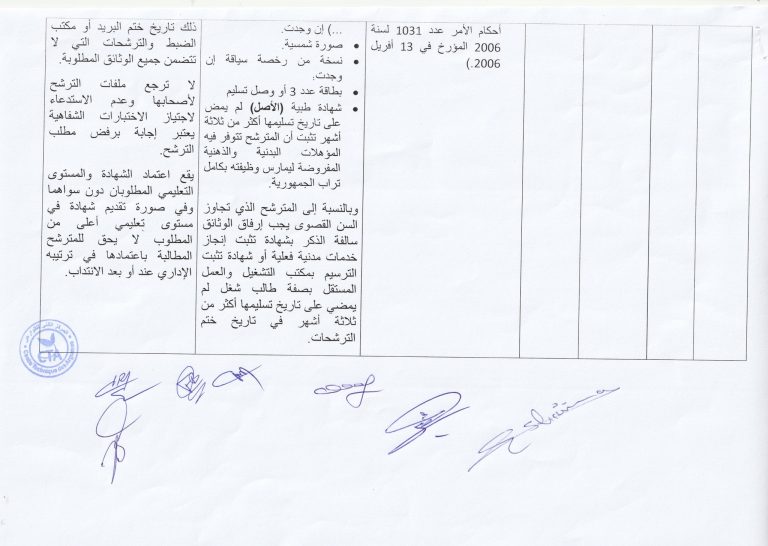 أحكام الأمر عدد 1031 لسنة
2006 المؤرخ في 13 أفريل
2006.)
...) إن وجدت.
• صورة شمسية.
• نسخة من رخصة سياقة إن
وجدت.
• بطاقة عدد 3 أو وصل تسليم
• شهادة طبية (الأصل) لم يمض
على تاريخ تسليمها أكثر من ثلاثة
أشهر تثبت أن المترشح تتوفر فيه
المؤهلات البدنية والذهنية
المفروضة ليمارس وظيفته بكامل
تراب الجمهورية.
وبالنسبة إلى المترشح الذي تجاوز
السن القصوى يجب إرفاق الوثائق
سالفة الذكر بشهادة تثبت إنجاز
خدمات مدنية فعلية أو شهادة تثبت
الترسيم بمكتب التشغيل والعمل
المستقل بصفة طالب شغل لم
يمضي على تاريخ تسليمها أكثر من
ثلاثة أشهر في تاريخ ختم
الترشحات.
ذلك تاريخ ختم البريد أو مكتب
الضبط والترشحات التي لا
تتضمن جميع الوثائق المطلوبة.
لا ترجع ملفات الترشح
لأصحابها وعدم الاستدعاء
لاجتياز الاختبارات الشفاهية
يعتبر إجابة برفض مطلب
الترشح.
يقع اعتماد الشهادة والمستوى
التعليمي المطلوبان دون سواهما
وفي صورة تقديم شهادة في
مستوى تعليمي أعلى من
المطلوب لا يحق للمترشح
المطالبة باعتمادها في ترتيبه
الإداري عند أو بعد الانتداب.
CTA